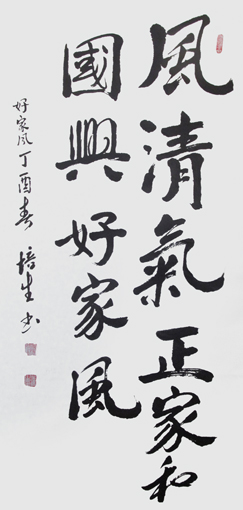 風清氣正家和
國興好家風
好家风丁酉春培生书